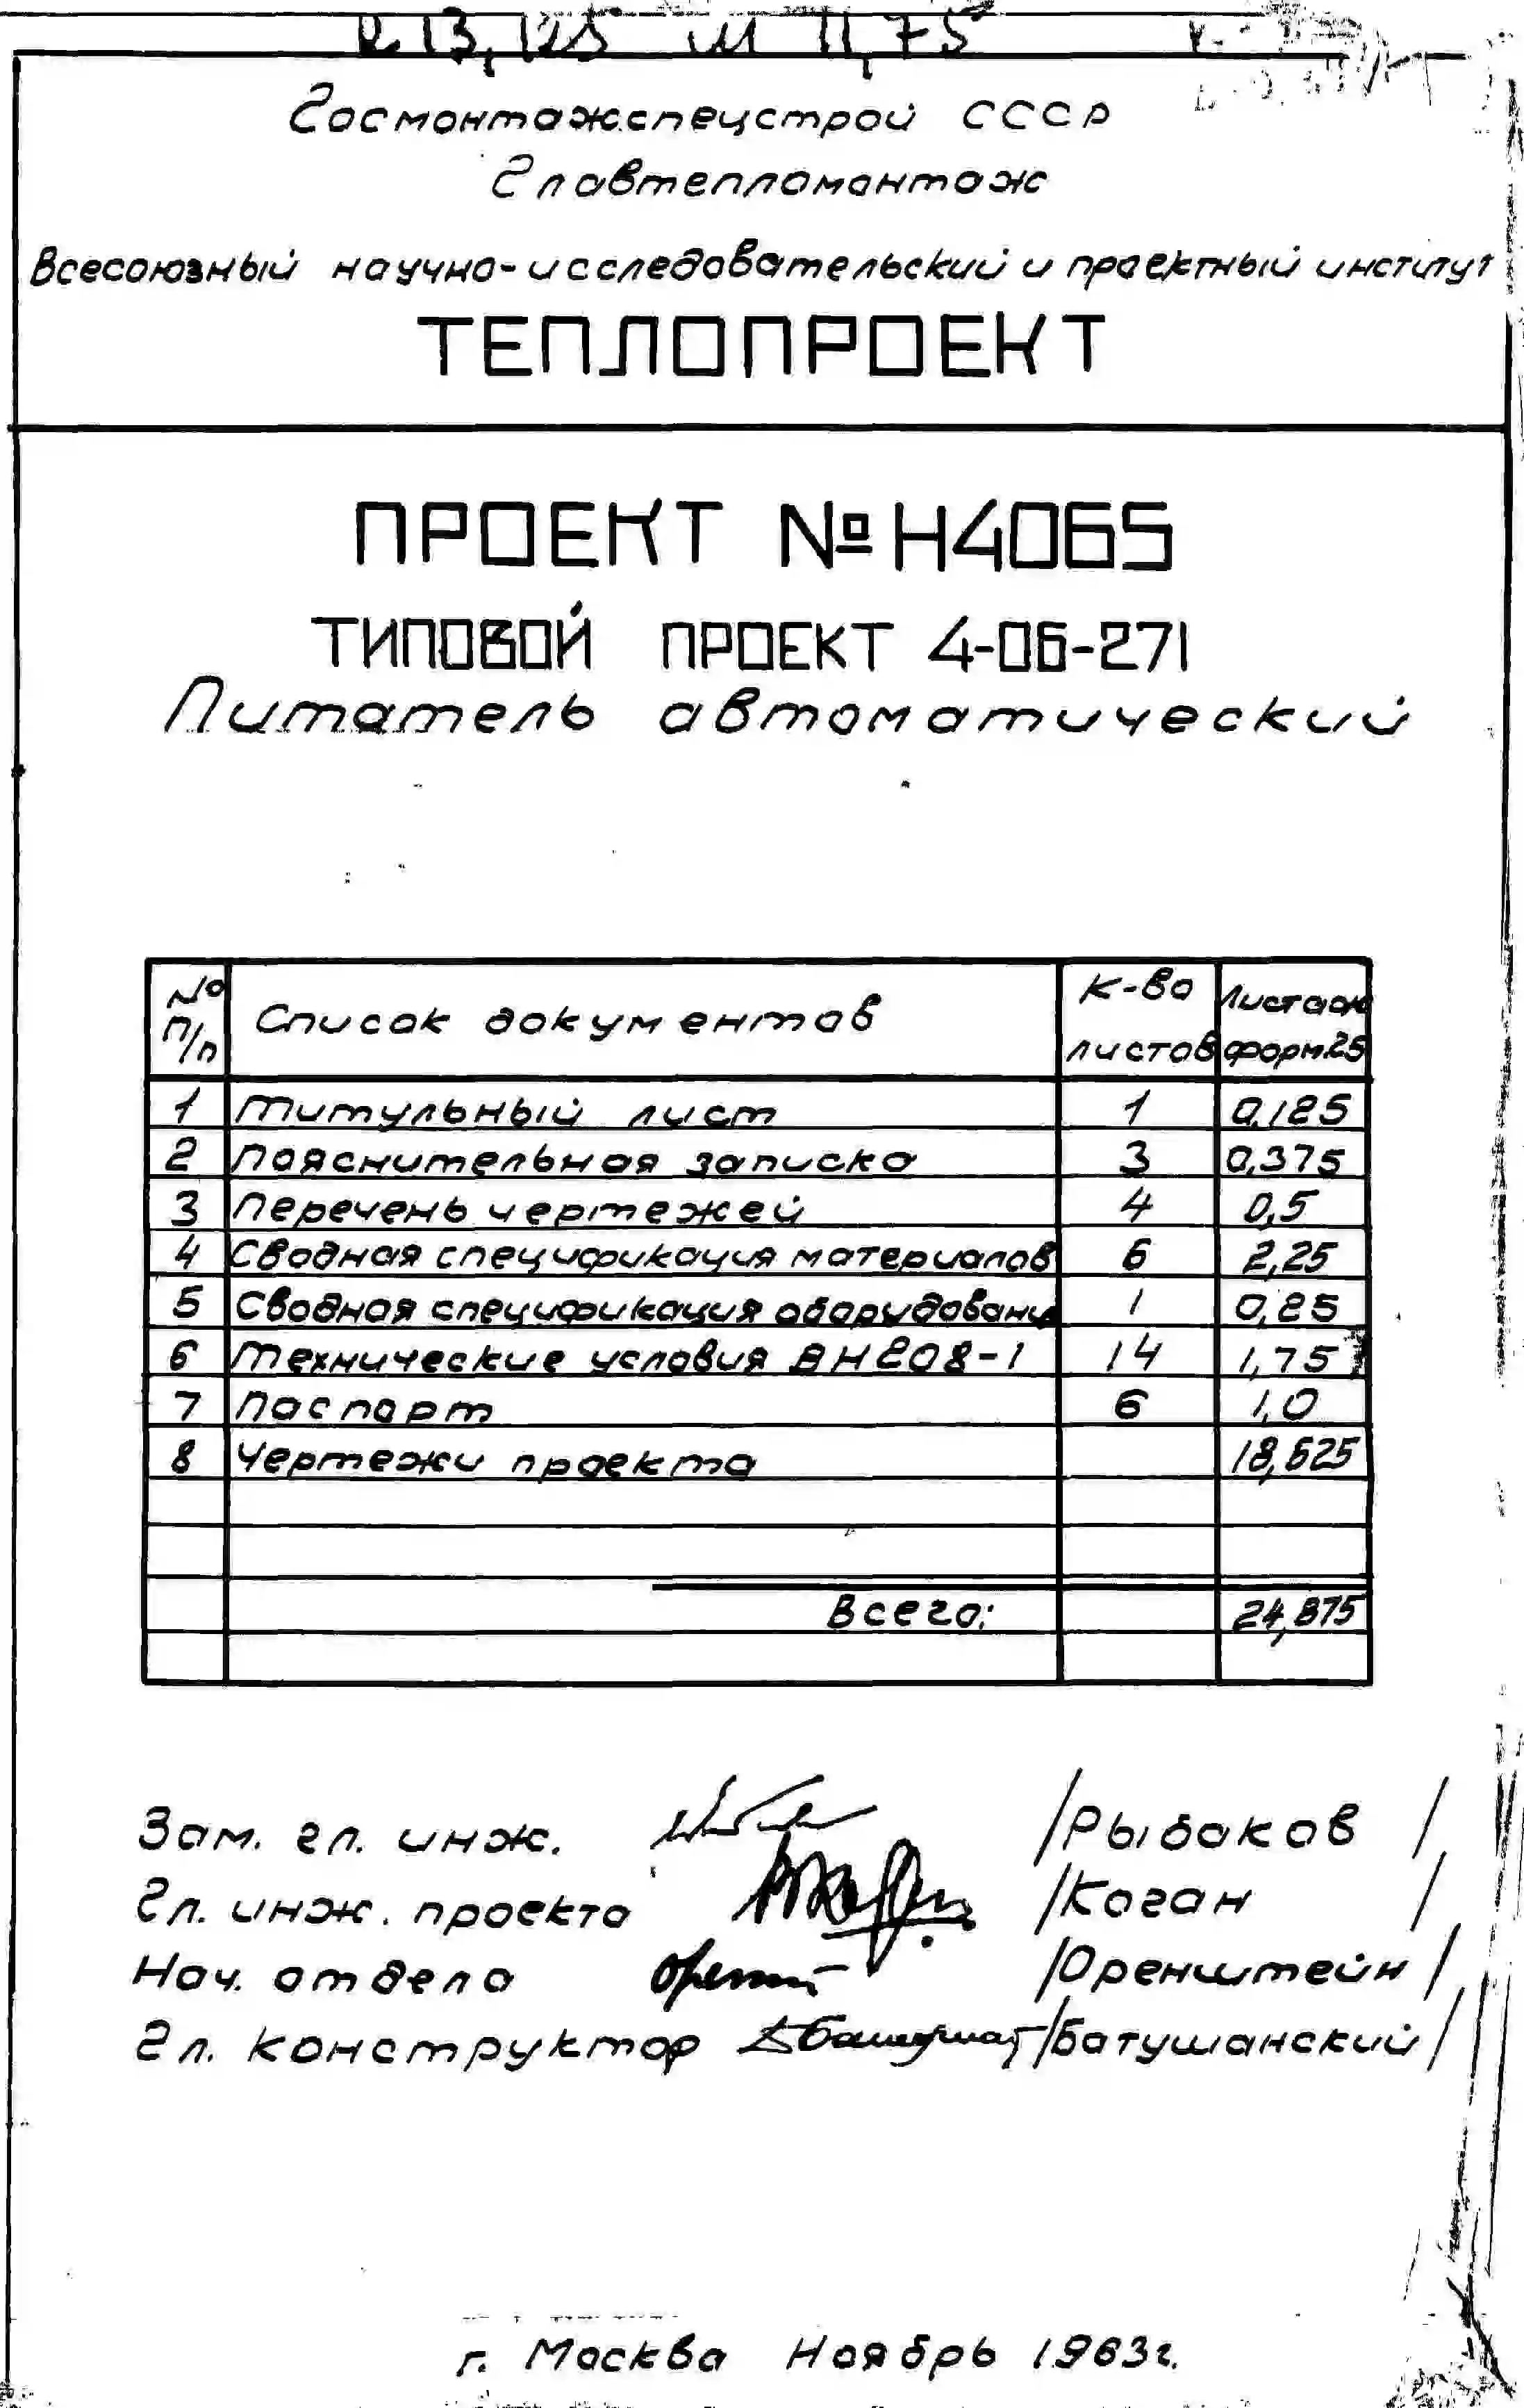 Госмонтажспецстрой СССР
Главтепломонтаж
Всесоюзный научно-исследовательский и проектный институт
ТЕПЛОПРОЕКТ
ПРОЕКТ № Н4065
ТИПОВОЙ ПРОЕКТ 4-06-271
Питатель автоматический
№ п/п Список документов К-во листов Листаж форм.25
1 Титульный лист 1 0,125
2 Пояснительная записка 3 0,375
3 Перечень чертежей 4 0,5
4 Сводная спецификация материалов 6 2,25
5 Сводная спецификация оборудовани 1 0,25
6 Технические условия ВН208-1 14 1,75
7 Паспорт 6 1,0
8 Чертежи проекта 18,625
Всего: 24,875
Зам. гл. инж. /Рыбаков /
Гл. инж. проекта /Коган /
Нач. отдела /Оренштейн/
Гл. конструктор /Батушанский/
г. Москва Ноябрь 1963г.